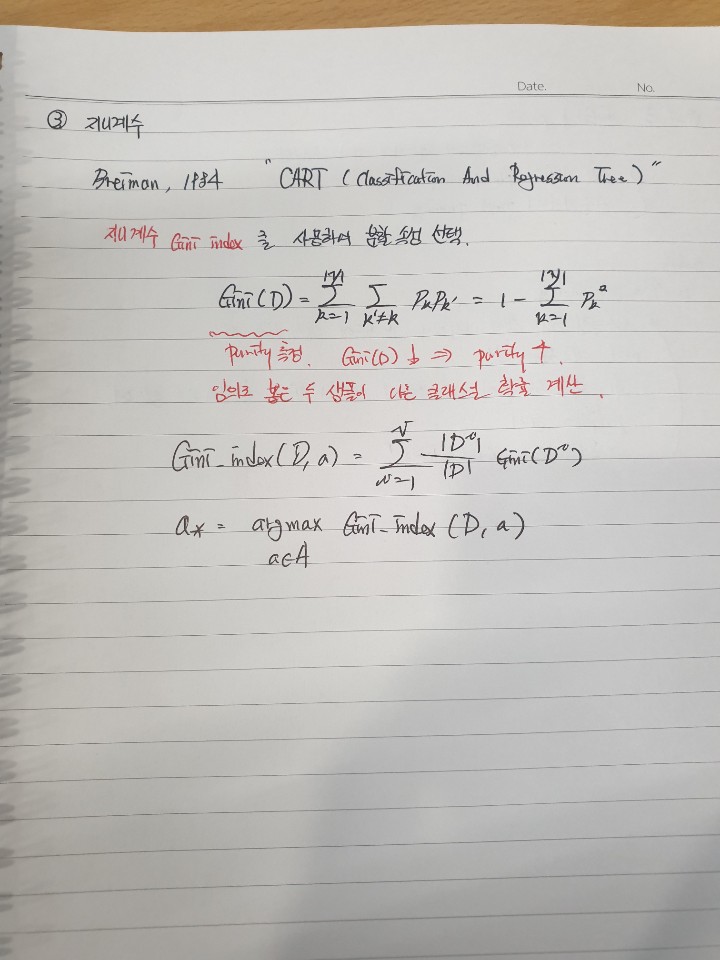 Date. No.
③ 지니계수
Breiman, 1984 "CART (Classification And Regression Tree)"
지니계수 Gini index 를 사용하여 분할 속성 선택.
Gini(D) = \sum_{k=1}^{|y|} \sum_{k'≠k} P_k P_{k'} = 1 - \sum_{k=1}^{|y|} P_k^2
purity 측정. Gini(D) ↓ ⇒ purity ↑.
임의로 뽑은 두 샘플이 다른 클래스일 확률 계산.
Gini_index(D, a) = \sum_{v=1}^{V} \frac{|D^v|}{|D|} Gini(D^v)
a_* = argmax Gini_index(D, a)
a∈A